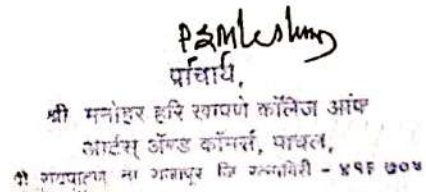 प्राचार्य,
श्री मनोहर हरि खापणे कॉलेज ऑफ
आर्टस् ॲण्ड कॉमर्स, पाचल,
रायपाटण ता राजापूर जि रत्नागिरी - ४१६ ७०४